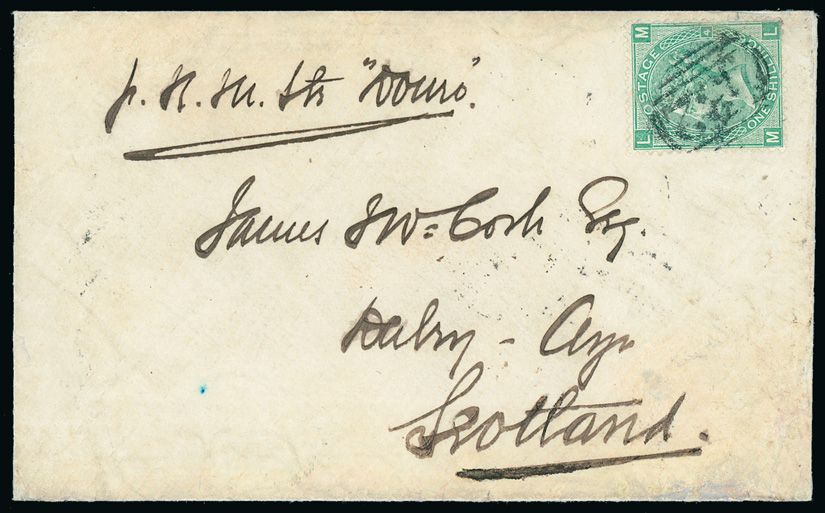 p. R. M. Str "Douro".
James McCosh Esq.
Dalry - Ayr
Scotland.
POSTAGE
ONE SHILLING
L M
M L
4